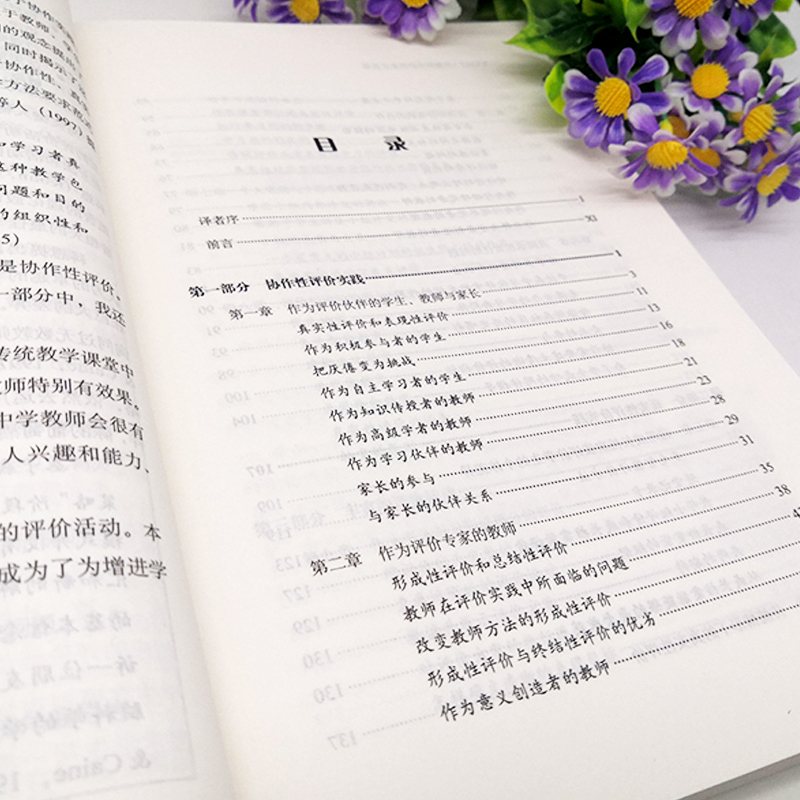 于协作实
于教师
的观念提出
同时揭示了
协作性、真
方法要求教
等人（1997）
和学习者真
这种教学也
问题和目的
的组织性和
5）
是协作性评价，
一部分中，我还
传统教学课堂中
教师特别有效。
中学教师会很有
人兴趣和能力、
的评价活动。本
成为了为增进学
目 录
译者序 …… I
前言 …… XI
第一部分 协作性评价实践 …… 1
第一章 作为评价伙伴的学生、教师与家长 …… 3
真实性评价和表现性评价 …… 11
作为积极参与者的学生 …… 13
把厌倦变为挑战 …… 16
作为自主学习者的学生 …… 18
作为知识传授者的教师 …… 21
作为高级学者的教师 …… 23
作为学习伙伴的教师 …… 28
家长的参与 …… 29
与家长的伙伴关系 …… 31
第二章 作为评价专家的教师 …… 35
形成性评价和总结性评价 …… 38
教师在评价实践中所面临的问题 ……
改变教师方法的形成性评价 ……
形成性评价与终结性评价的优劣 ……
作为意义创造者的教师 ……